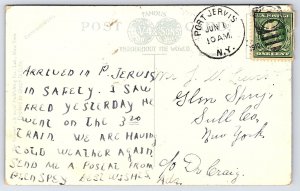 POST
FAMOUS
THROUGHOUT THE WORLD
PORT JERVIS
JUN
10 AM
N.Y.
ARRIVED IN P. JERVIS
IN SAFETY. I SAW
FRED YESTERDAY HE
WENT ON THE 3 20
TRAIN WE ARE HAVING
COLD WEATHER AGAIN
SEND ME A POSTAL FROM
GLENSPEY BEST WISHES
Glen Spey
Sull Co,
New York
c/o Do Craig